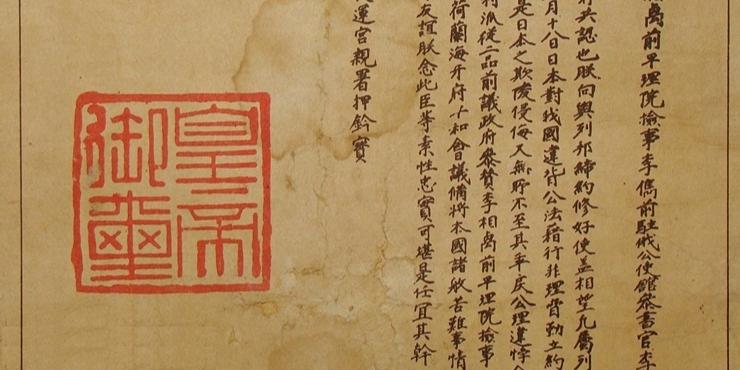 卨前平理院檢事李儁前駐俄公使館叅書官李
共認也朕向與列邦締約修好使盖相望凡屬列
月十八日日本對我國違背公法藉行非理脅勒立約
是日本之欺陵侵侮又無所不至其乖戾公理違悖
派從二品前議政府叅贊李相卨前平理院檢事
荷蘭海牙府平和會議俻將本國諸般苦難事情
友誼朕念此臣等素性忠實可堪是任宜其幹
運宮親署押鈐寶
皇帝
御璽